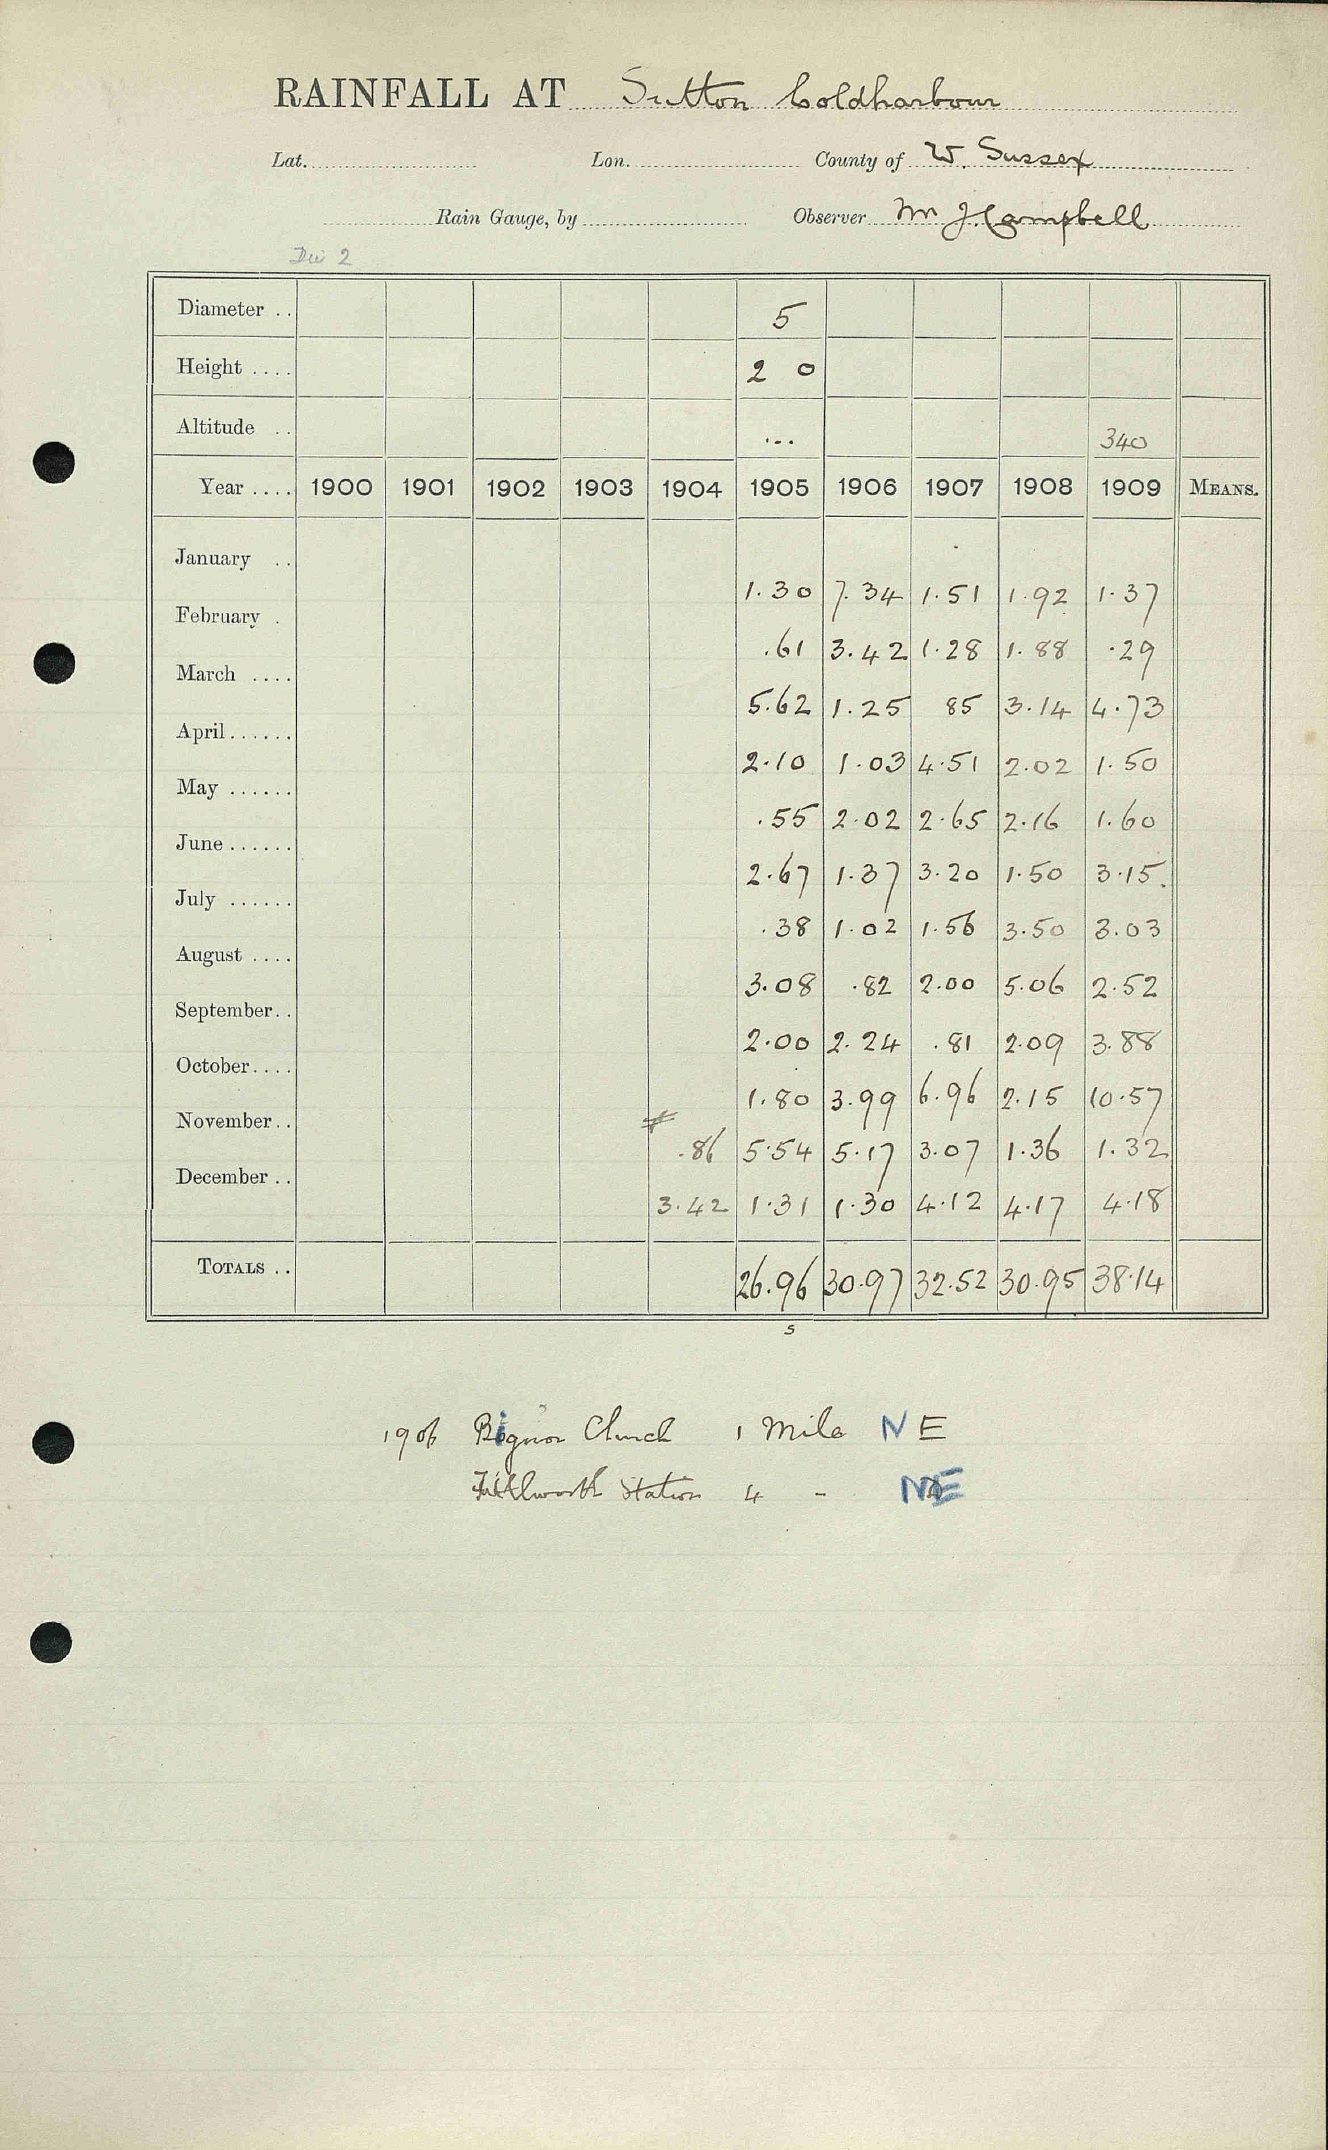 RAINFALL AT Sutton Coldharbour
Lat. Lon. County of W. Sussex
Rain Gauge, by Observer Mr J. Campbell
Div 2
Diameter .. 5
Height .... 2 0
Altitude .. ... 340
Year .... 1900 1901 1902 1903 1904 1905 1906 1907 1908 1909 MEANS.
January .. 1.30 7.34 1.51 1.92 1.37
February . .61 3.42 1.28 1.88 .29
March .... 5.62 1.25 85 3.14 4.73
April ...... 2.10 1.03 4.51 2.02 1.50
May ...... .55 2.02 2.65 2.16 1.60
June ...... 2.67 1.37 3.20 1.50 3.15.
July ...... .38 1.02 1.56 3.50 3.03
August .... 3.08 .82 2.00 5.06 2.52
September.. 2.00 2.24 .81 2.09 3.88
October.... 1.80 3.99 6.96 2.15 10.57
November.. # .86 5.54 5.17 3.07 1.36 1.32
December .. 3.42 1.31 1.30 4.12 4.17 4.18
TOTALS .. 26.96 30.97 32.52 30.95 38.14
s
1906 Bignor Church 1 Mile N E
Fittleworth Station 4 - NE